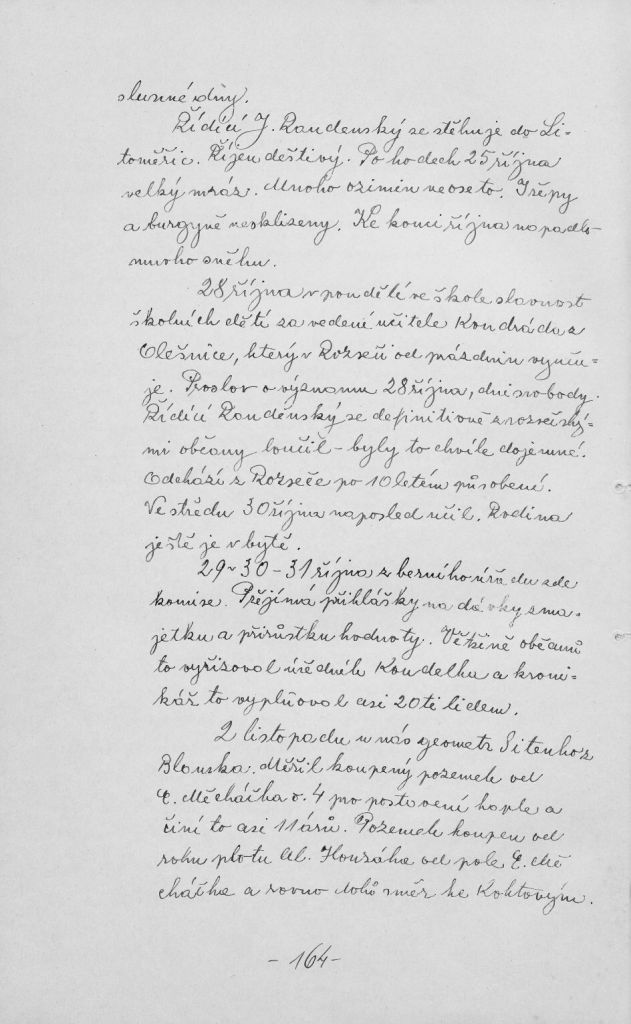 slunné dny.
Řídící J. Roudenský se stěhuje do Li-
toměřic. Říjen deštivý. Po hodech 25 října
velký mráz. Mnoho ozimin neoseto. Řepy
a burgyně nesklizeny. Ke konci října napadlo
mnoho sněhu.
28 října v pondělí ve škole slavnost
školních dětí za vedení učitele Kondráda z
Olešnice, který v Rozseči od prázdnin vyuču-
je. Proslov o významu 28 října, dni svobody.
Řídící Roudenský se definitivně z rozsečský-
mi občany loučil - byly to chvíle dojemné.
Odchází z Rozseče po 10 letém působení.
Ve středu 30 října naposled učil. Rodina
ještě je v bytě.
29 - 30 - 31 října z berního úřadu zde
komise. Přejímá přihlášky na dávky z ma-
jetku a přírůstku hodnoty. Většině občanů
to vyřizoval úředník Koudelka a kroni-
kář to vyplňoval asi 20ti lidem.
2 listopadu u nás geometr z
Blanska. Měřil koupený pozemek od
E. Měcháčka č. 4 pro postavení kaple a
činí to asi 11 árů. Pozemek koupen od
rohu plotu Al. Honzáka od pole E. Mě
cháčka a rovno dolů směr ke Kohtovým.
- 164 -